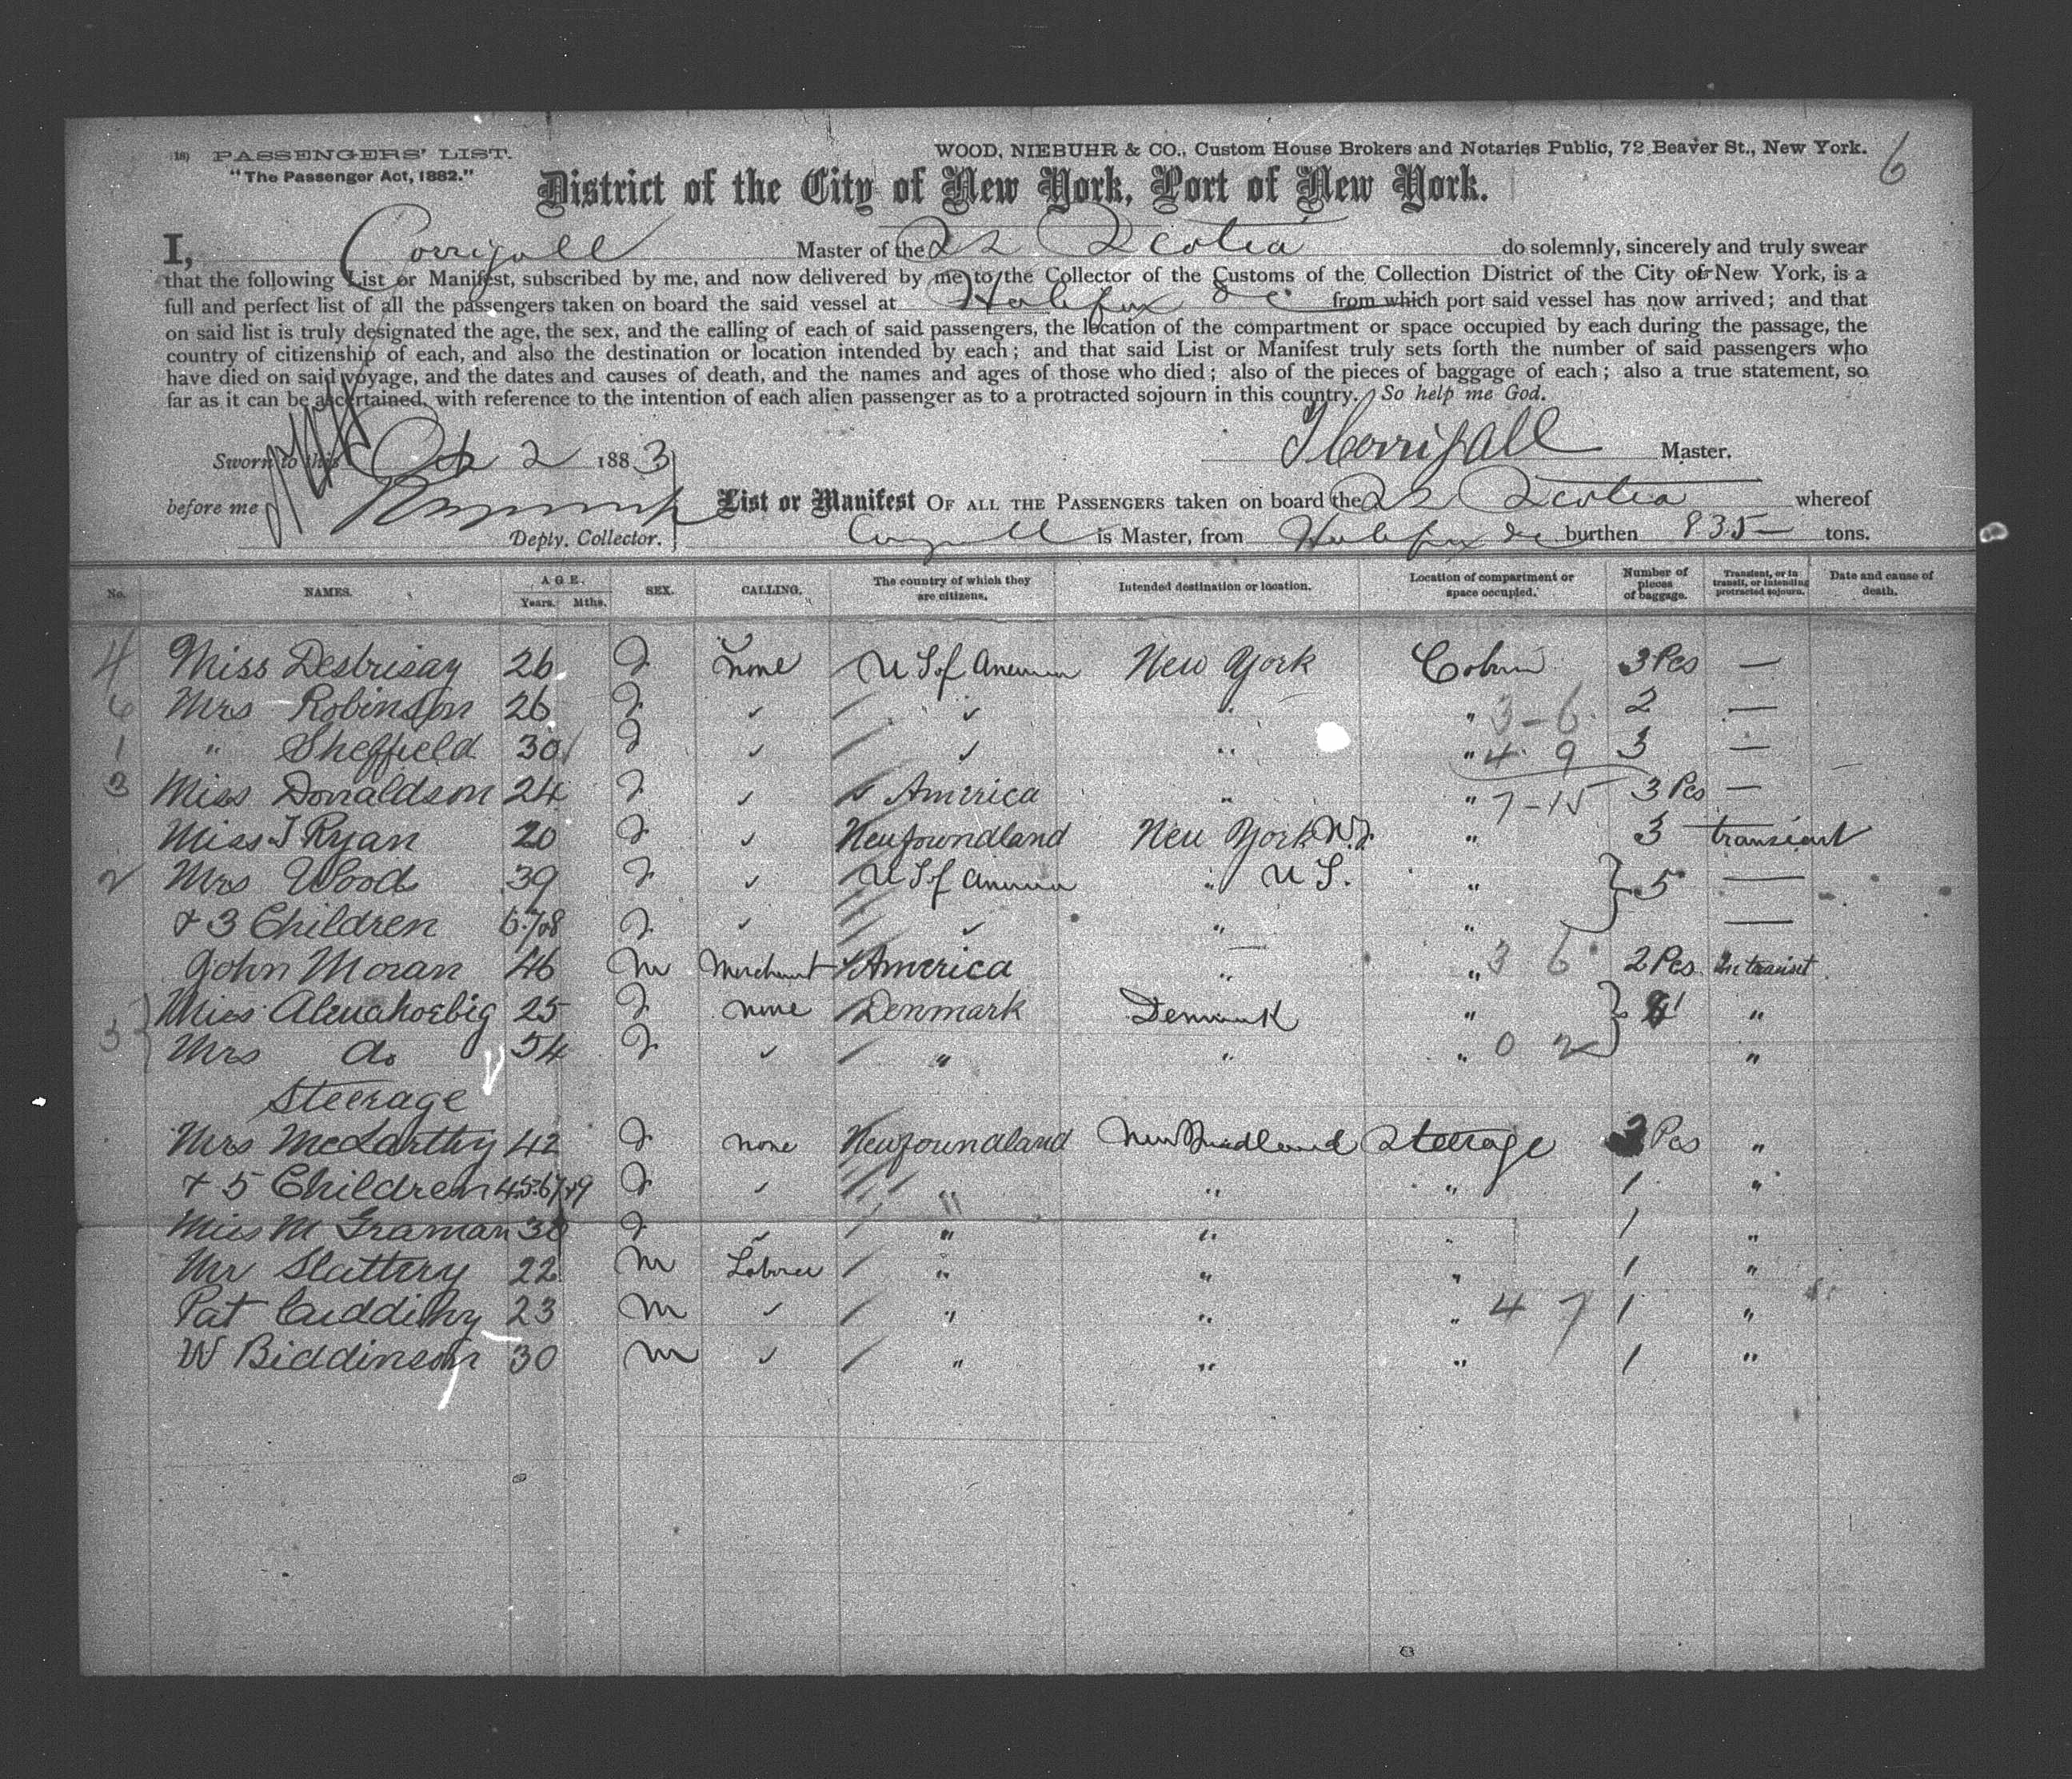 18) PASSENGERS' LIST. WOOD, NIEBUHR & CO., Custom House Brokers and Notaries Public, 72 Beaver St., New York. 6
"The Passenger Act, 1882."
District of the City of New York, Port of New York.
I, Corrigall Master of the SS Scotia do solemnly, sincerely and truly swear
that the following List or Manifest, subscribed by me, and now delivered by me to the Collector of the Customs of the Collection District of the City of New York, is a
full and perfect list of all the passengers taken on board the said vessel at Halifax &c from which port said vessel has now arrived; and that
on said list is truly designated the age, the sex, and the calling of each of said passengers, the location of the compartment or space occupied by each during the passage, the
country of citizenship of each, and also the destination or location intended by each; and that said List or Manifest truly sets forth the number of said passengers who
have died on said voyage, and the dates and causes of death, and the names and ages of those who died; also of the pieces of baggage of each; also a true statement, so
far as it can be ascertained, with reference to the intention of each alien passenger as to a protracted sojourn in this country. So help me God.
Sworn to this Oct 2 1883 Corrigall Master.
before me List or Manifest OF ALL THE PASSENGERS taken on board the SS Scotia whereof
Deply. Collector. Corrigall is Master, from Halifax &c burthen 835 tons.
No. NAMES. AGE. Years. Mths. SEX. CALLING. The country of which they are citizens. Intended destination or location. Location of compartment or space occupied. Number of pieces of baggage. Transient, or in transit, or intending protracted sojourn. Date and cause of death.
4 Miss Desbrisay 26 F none U S of America New York Cabin 3 Pcs —
6 Mrs Robinson 26 F ✓ ✓ " " 3-6 2 —
1 " Sheffield 30 F ✓ ✓ " " 4 9 3 —
3 Miss Donaldson 24 F ✓ America " " 7-15 3 Pcs —
Miss J Ryan 20 F ✓ Newfoundland New York " 3 transient
2 Mrs Wood 39 F ✓ U S of America " U S. " 5 —
& 3 Children 6.7&8 F ✓ ✓ " " —
John Moran 46 M Merchant America " " 3 6 2 Pcs In transit
3 Miss 25 F none Denmark Denmark " "
Mrs do 54 F ✓ " " " 0 2 "
Steerage
Mrs McCarthy 42 F none Newfoundland Newfoundland Steerage 3 Pcs "
& 5 Children 4.5.6.7&9 F ✓ " " " 1 "
Miss M Framan 30 F ✓ " " " 1 "
Mr Slattery 22 M Laborer " " " 1 "
Pat Cuddihy 23 M ✓ " " " 4 7 1 "
W Biddinson 30 M ✓ " " " 1 "